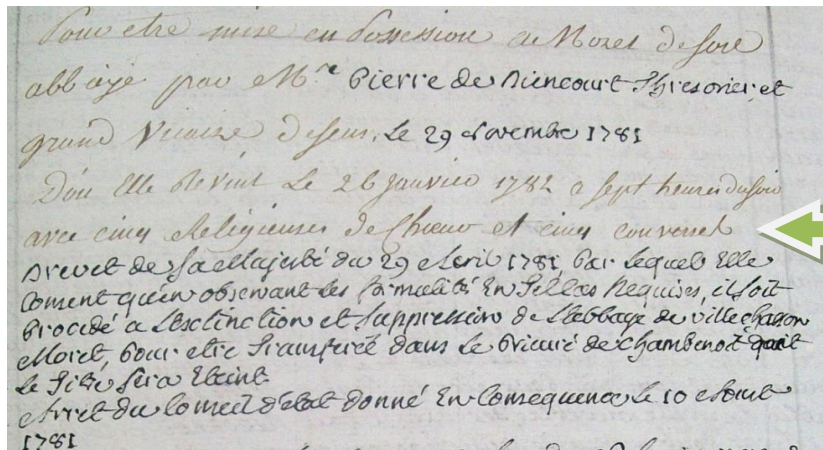 Pour etre mise en Possession de Moret de son
abbaye par Mre Pierre de Diencourt Thresorier et
grand Vicaire de sens, Le 29 Novembre 1781
D'où Elle Revint Le 26 janvier 1782 a sept heures du soir
avec cinq Religieuses de Chœur et cinq converses
Brevet de Sa Majesté du 29 Avril 1781, Par Lequel Elle
Consent qu'en observant les formalités En Pareil cas Requises, il soit
Procédé a L'extinction et suppression de L'abbaye de villechasson
Moret, Pour etre Transferé dans Le Prieuré de Champbenoit
Le Titre sera Eteint
Arret du Conseil d'état donné En Consequence Le 10 Aout
1781